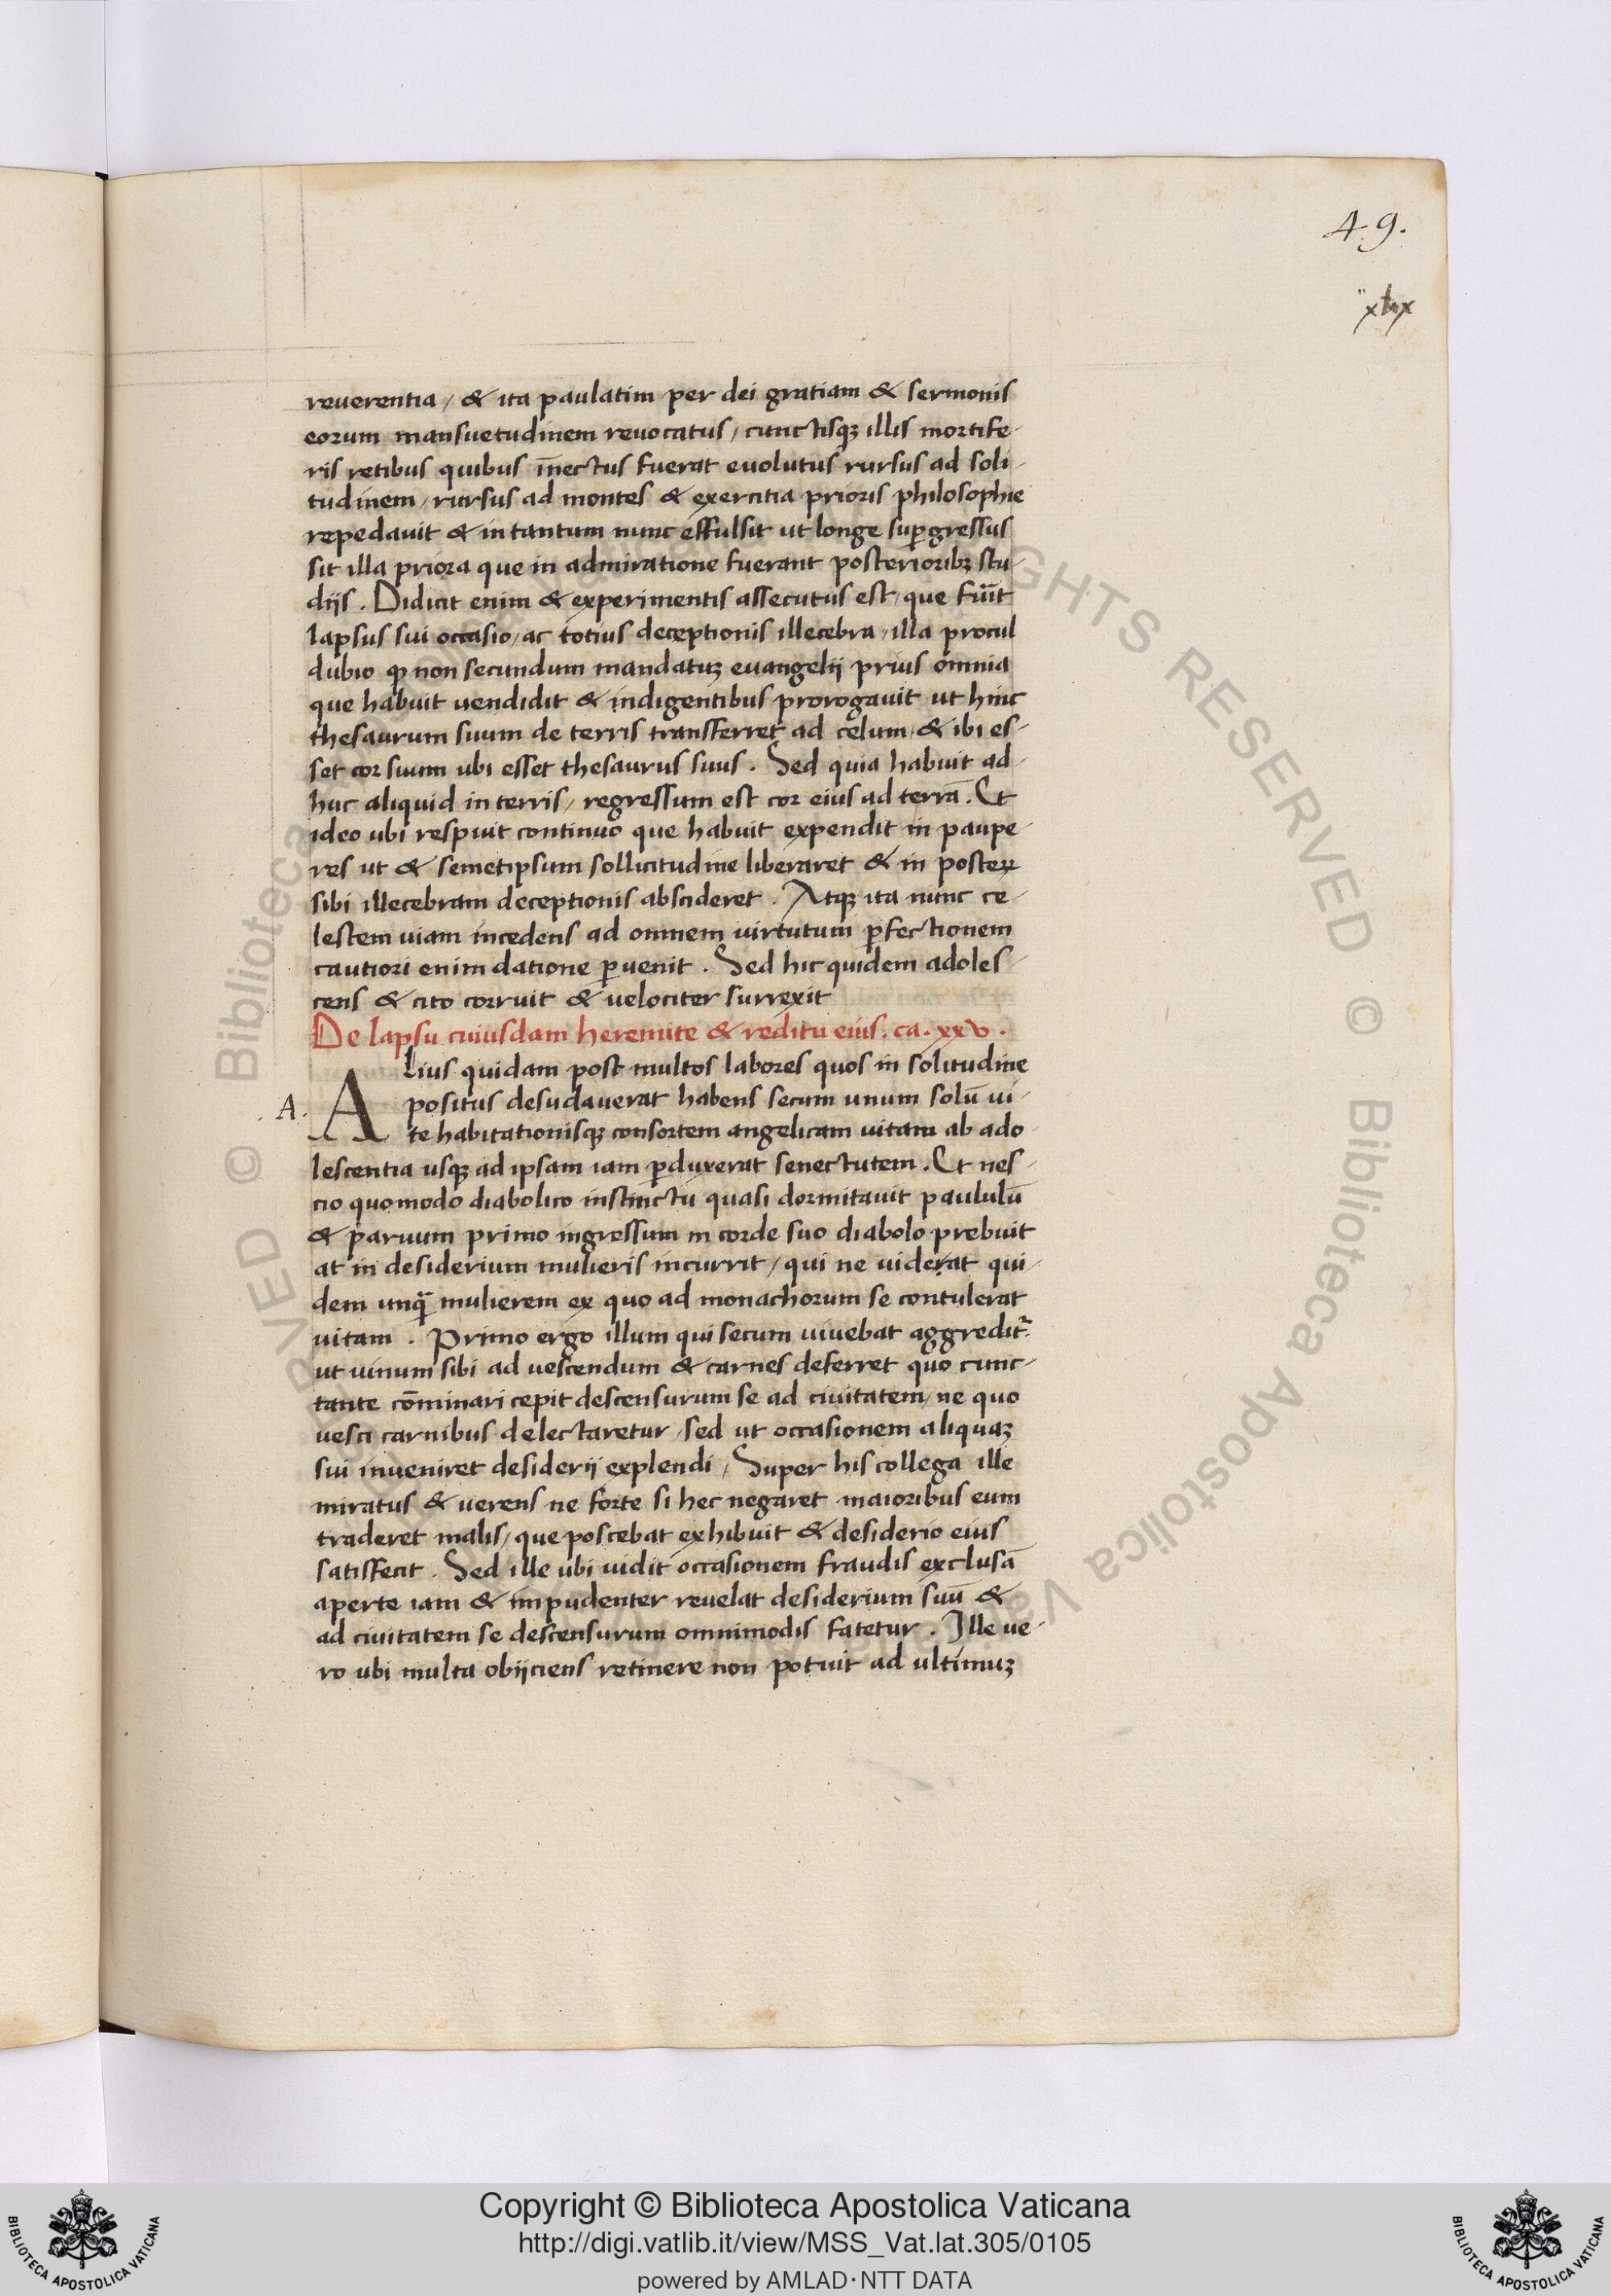 49.
xlix
reuerentia / & ita paulatim per dei gratiam & sermonis
eorum mansuetudinem reuocatus / cunctisqꝫ illis mortife-
ris retibus quibus īnectus fuerat euolutus rursus ad soli-
tudinem / rursus ad montes & exercitia prioris philosophie
repedauit & in tantum nunc effulsit ut longe suꝑgressus
sit illa priora que in admiratione fuerant posterioribꝫ stu-
dijs . Didicit enim & experimentis assecutus est / que fuīt
lapsus sui occasio / ac totius deceptionis illecebra / illa procul
dubio ꝙ non secundum mandatuꝫ euangelij prius omnia
que habuit uendidit & indigentibus prorogauit ut hinc
thesaurum suum de terris transferret ad celum / & ibi es-
set cor suum ubi esset thesaurus suus . Sed quia habuit ad-
huc aliquid in terris / regressum est cor eius ad terrā . Et
ideo ubi respuit continuo que habuit expendit in paupe-
res ut & semetipsum sollicitudine liberaret & in posteꝝ
sibi illecebram deceptionis abscideret . Atqꝫ ita nunc ce-
lestem uiam incedens ad omnem uirtutum ꝑfectionem
cautiori enim datione ꝑuenit . Sed hic quidem adoles-
cens & cito corruit & uelociter surrexit
De lapsu cuiusdam heremite & reditu eius . ca . xxv .
A . Alius quidam post multos labores quos in solitudine
positus desudauerat habens secum unum solū ui-
te habitationisqꝫ consortem angelicam uitam ab ado-
lescentia usqꝫ ad ipsam iam ꝑduxerat senectutem . Et nes-
cio quomodo diabolico instinctu quasi dormitauit paululū
& paruum primo ingressum in corde suo diabolo prebuit
at in desiderium mulieris incurrit / qui ne uiderat qui-
dem unq̄ mulierem ex quo ad monachorum se contulerat
uitam . Primo ergo illum qui secum uiuebat aggredit᷑
ut uinum sibi ad uescendum & carnes deferret quo cunc-
tante cōminari cepit descensurum se ad ciuitatem / ne quo
uesci carnibus delectaretur / sed ut occasionem aliquaꝫ
sui inueniret desiderij explendi / Super his collega ille
miratus & uerens ne forte si hec negaret maioribus eum
traderet malis / que poscebat exhibuit & desiderio eius
satisfecit . Sed ille ubi uidit occasionem fraudis exclusā
aperte iam & impudenter reuelat desiderium suū &
ad ciuitatem se descensurum omnimodis fatetur . Ille ue-
ro ubi multa obijciens retinere non potuit ad ultimuꝫ
Copyright © Biblioteca Apostolica Vaticana
http://digi.vatlib.it/view/MSS_Vat.lat.305/0105
powered by AMLAD·NTT DATA